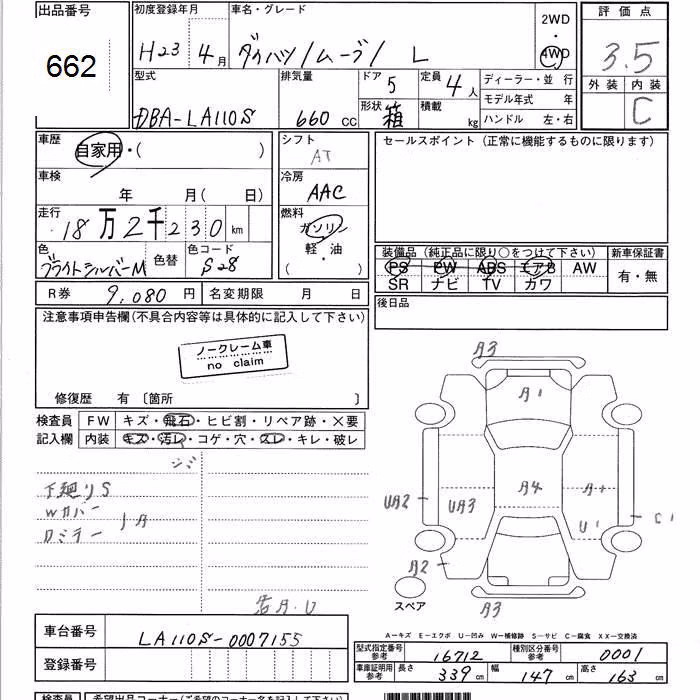 出品番号
662
初度登録年月
H23 4月
車名・グレード
ダイハツ/ムーヴ/ L
2WD
・
4WD
評価点
3.5
外装 内装
C
型式
DBA-LA110S
排気量
660 CC
ドア 5
形状 箱
定員 4人
積載 kg
ディーラー・並 行
モデル年式 年
ハンドル 左・右
車歴
自家用・( )
車検
年 月( 日)
走行
18万2千230 km
色
ブライトシルバーM
色替
色コード
S28
シフト
AT
冷房
AAC
燃料
ガソリン
軽・油
( )
セールスポイント (正常に機能するものに限ります)
装備品 (純正品に限り○をつけて下さい)
PS PW ABS エアB AW
SR ナビ TV カワ
新車保証書
有・無
後日品
R券 9,080 円
名変期限 月 日
注意事項申告欄(不具合内容等は具体的に記入して下さい)
ノークレーム車
no claim
修復歴 有 〔箇所 〕
検査員
記入欄
FW キズ・飛石・ヒビ割・リペア跡・×要
内装 キズ・汚レ・コゲ・穴・スレ・キレ・破レ
シミ
下廻りS
Wカバー
ロミラー
A
A・U
A3
A1
UA2
UA3
A4
A+
U1
C1
A2
スペア
A3
A―キズ E―エクボ U―凹み W―補修跡 S―サビ C―腐食 XX―交換済
車台番号
LA110S-0007155
登録番号
型式指定番号
参考
16712
種別区分番号
参考
0001
車庫証明用
参考
長さ 339 cm
幅 147 cm
高さ 163 cm
検査員
希望出品コーナー(ご希望のコーナー名を記入下さい)